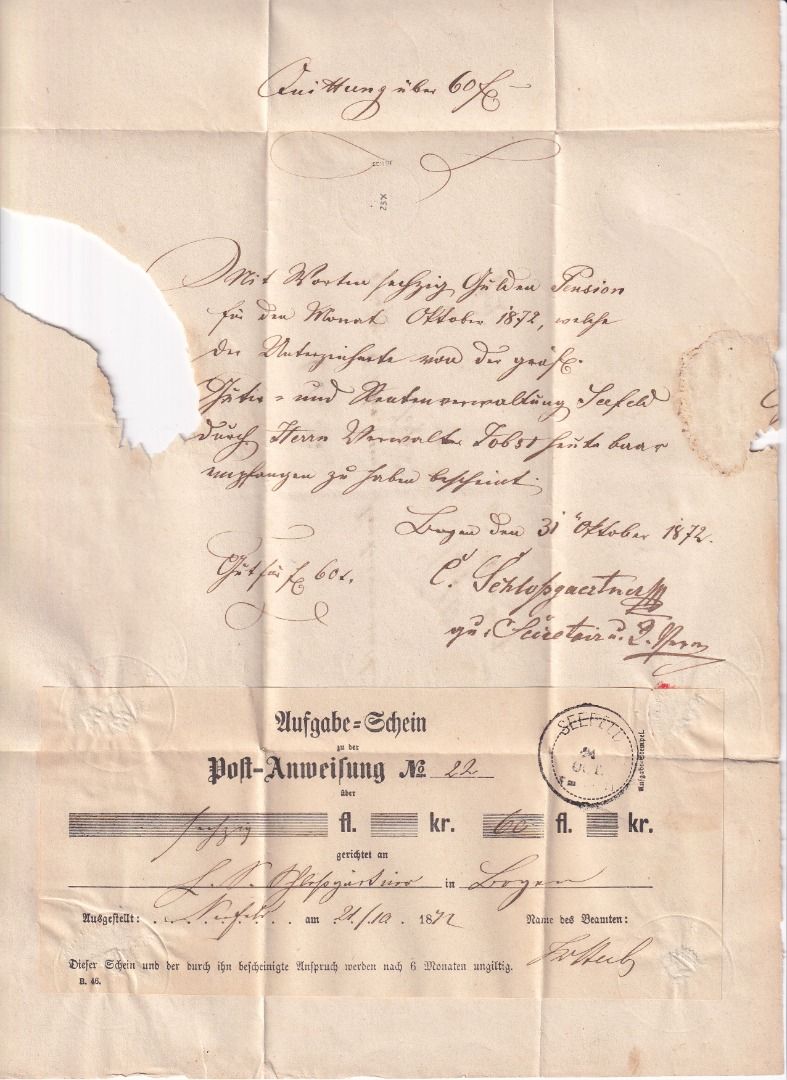 Quittung über 60 f
Mit Worten sechzig Gulden Pension
für den Monat Oktober 1872, welche
der Unterzeichnete von der gräfl.
Güter- und Rentenverwaltung Seefeld
durch Herrn Verwalter Jobst heute baar
empfangen zu haben bescheint.
Bogen den 31 Oktober 1872.
Gut für f 60 x.
C. Schloßgaertner
qu. Secretair u.
Aufgabe=Schein
zu der
Post-Anweisung № 22
über
sechzig fl. kr. 60 fl. kr.
gerichtet an
Schloßgärtner in Bogen
Ausgestellt: Seefeld am 21/10 1872 Name des Beamten:
Dieser Schein und der durch ihn bescheinigte Anspruch werden nach 6 Monaten ungiltig.
B. 46.
SEEFELD
Aufgabe-Stempel.